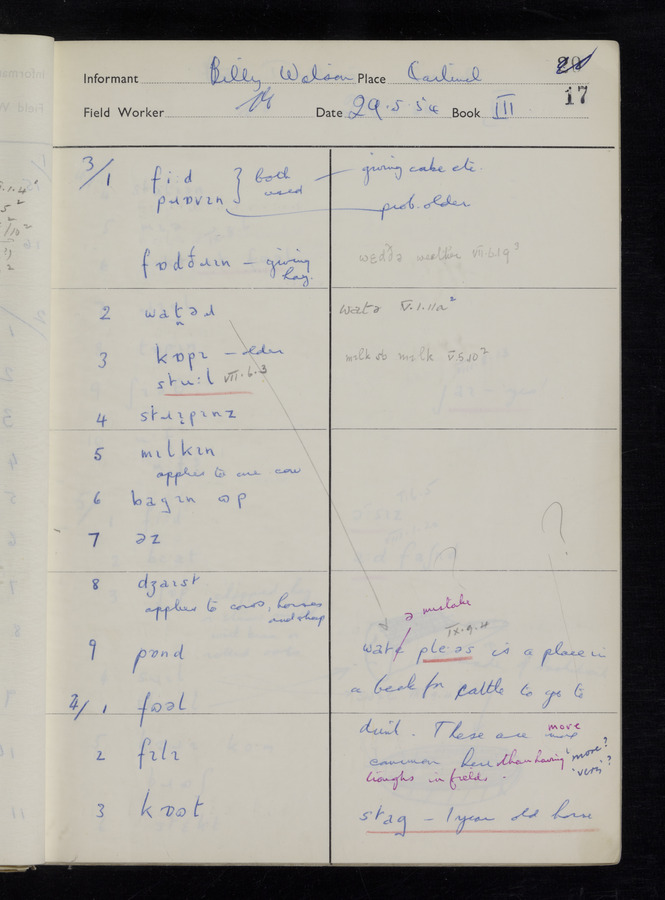 Informant Billy Watson Place Cartmel
Field Worker Date 29.5.54 Book III
17
3/1 fi:d } both used — giving cake etc.
pɹɒvɪn prob. older
fɒdðəɹɪn — giving hay.
wɛððə weather VII.6.19³
2 watəɹ
watə V.1.11a²
3 kɒpɪ — older
stu:l VII.6.3
mɪlk milk V.5.10²
4 stɹɪpɪnz
5 mɪlkɪn
applies to one cow
6 bagɪn ɒp
7 əz
8 dʒaɪst
applies to cows, horses and sheep
? ?
ə mistake
IX.9.4
9 pɒnd
watə pleəs is a place in
a beck for cattle to go to
4/1 fɒəl
drink. These are more
2 fɪlɪ
common here than having 'more'? 'very'?
troughs in fields.
3 kɒət
stag — 1 year old horse